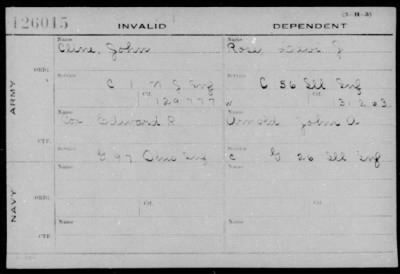 126015
INVALID
(3-H-3)
DEPENDENT
ARMY
NAVY
Name
Cline, John
Name
Rose,
ORIG.
Service
C 1 N J Inf
Ctf.
129777
Service
C 56 Ill Inf
W
Ctf.
CTF.
Name
Cox Edward R
Name
Arnold John A
Service
G 97 Ohio Inf
Service
C G 26 Ill Inf
ORIG.
Name
Ctf.
Name
Ctf.
CTF.
Name
Name